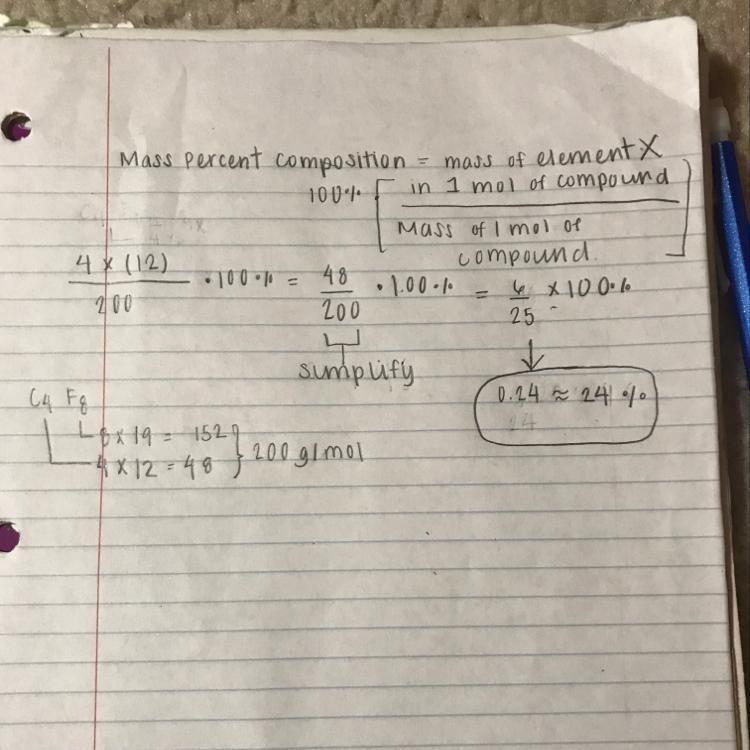 Mass percent composition = mass of element X
100% [ in 1 mol of compound
Mass of 1 mol of
compound ]
4 x (12) / 200 · 100% = 48 / 200 · 100% = 6 / 25 x 100%
simplify
0.24 ≈ 24 %
24
C4 F8
8 x 19 = 152
4 x 12 = 48 } 200 g/mol